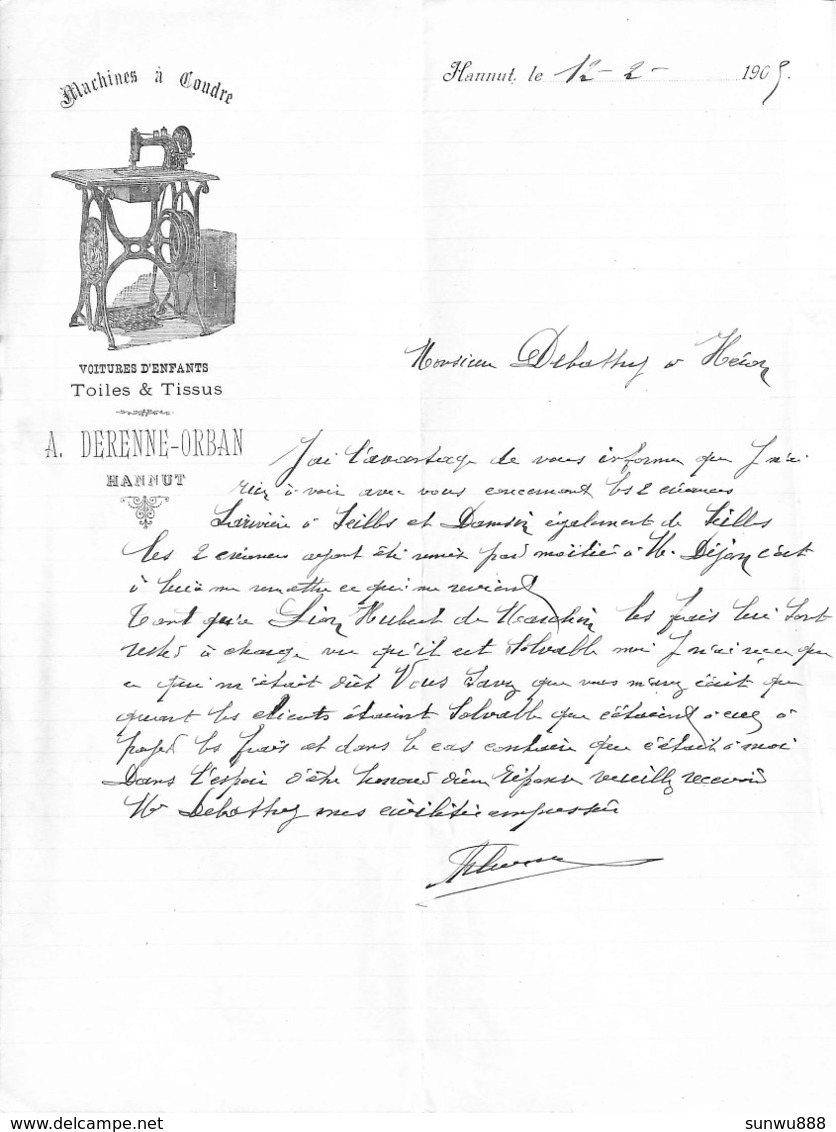 Machines à Coudre
Hannut, le 12-2- 1905.
VOITURES D'ENFANTS
Toiles & Tissus
A. DERENNE-ORBAN
HANNUT
Monsieur Debatty à Héron
J'ai l'avantage de vous informer que J n'ai
rien à voir avec vous concernant les 2 créances
Larivière à Seilles et Damsin également de Seilles
les 2 créances ayant été remis par moitié à Mr. Dejan c'est
à lui à me remettre ce qui me revient
Tant qu'a Lion Hubert de les frais lui sont
resté à charge vu qu'il est Solvable moi J n'ai reçu que
ce qui m'était dût Vous Savez que vous m'avez écrit que
quant les clients étaient Solvable que c'étaient à eux à
payer les frais et dans le cas contraire que c'était à moi
Dans l'espoir d'être honoré d'une Réponse veuillez recevoir
Mr Debatty mes civilités empressées
sunwu888